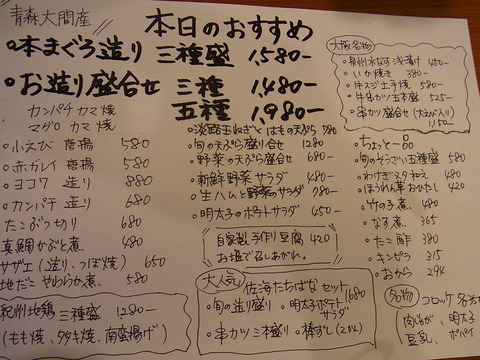 青森大間産
本日のおすすめ
・本まぐろ造り 三種盛 1,580-
・お造り盛合せ 三種 1,480-
五種 1,980-
カンパチカマ焼
マグロ カマ焼
・小えび 唐揚 580
・赤ガレイ 唐揚 580
・ヨコワ 造り 880
・カンパチ 造り 680
たこぶつ切り 680
真鯛かぶと煮 480
サザエ(造り、つぼ焼) 650
地だこ やわらか煮 580
・淡路玉ねぎとはもの天ぷら 580
・旬の天ぷら盛り合せ 1280-
・野菜の天ぷら盛合せ 680-
・新鮮野菜サラダ 480-
・生ハムと野菜のサラダ 780-
・明太子のポテトサラダ 450-
自家製手作り豆腐 420
お塩で召しあがれ。
大阪名物
・泉州水なす浅漬け 450-
・いか焼き 380-
・牛スジ土手焼 580-
・牛串カツ五本盛 525-
・串カツ盛合せ(大えび入り)
1,150-
・ちょっと一品
・旬のそうざい五種盛 580
・わけぎヌタ和え 480
・ほうれん草おひたし 420
・竹の子煮 480
・なす煮 365
・たこ酢 380
・キンピラ 315
・おから 294
紀州地鶏 三種盛 1280-
(もも焼、タタキ焼、南蛮揚げ)
大人気
佐海たちばなセット 1680
・旬の造り盛り ・明太子ポテトサラダ
・串カツ三本盛り ・棒ずし(2かん)
名物
コロッケ各
肉じゃが、明太子
豆乳、ポパイ